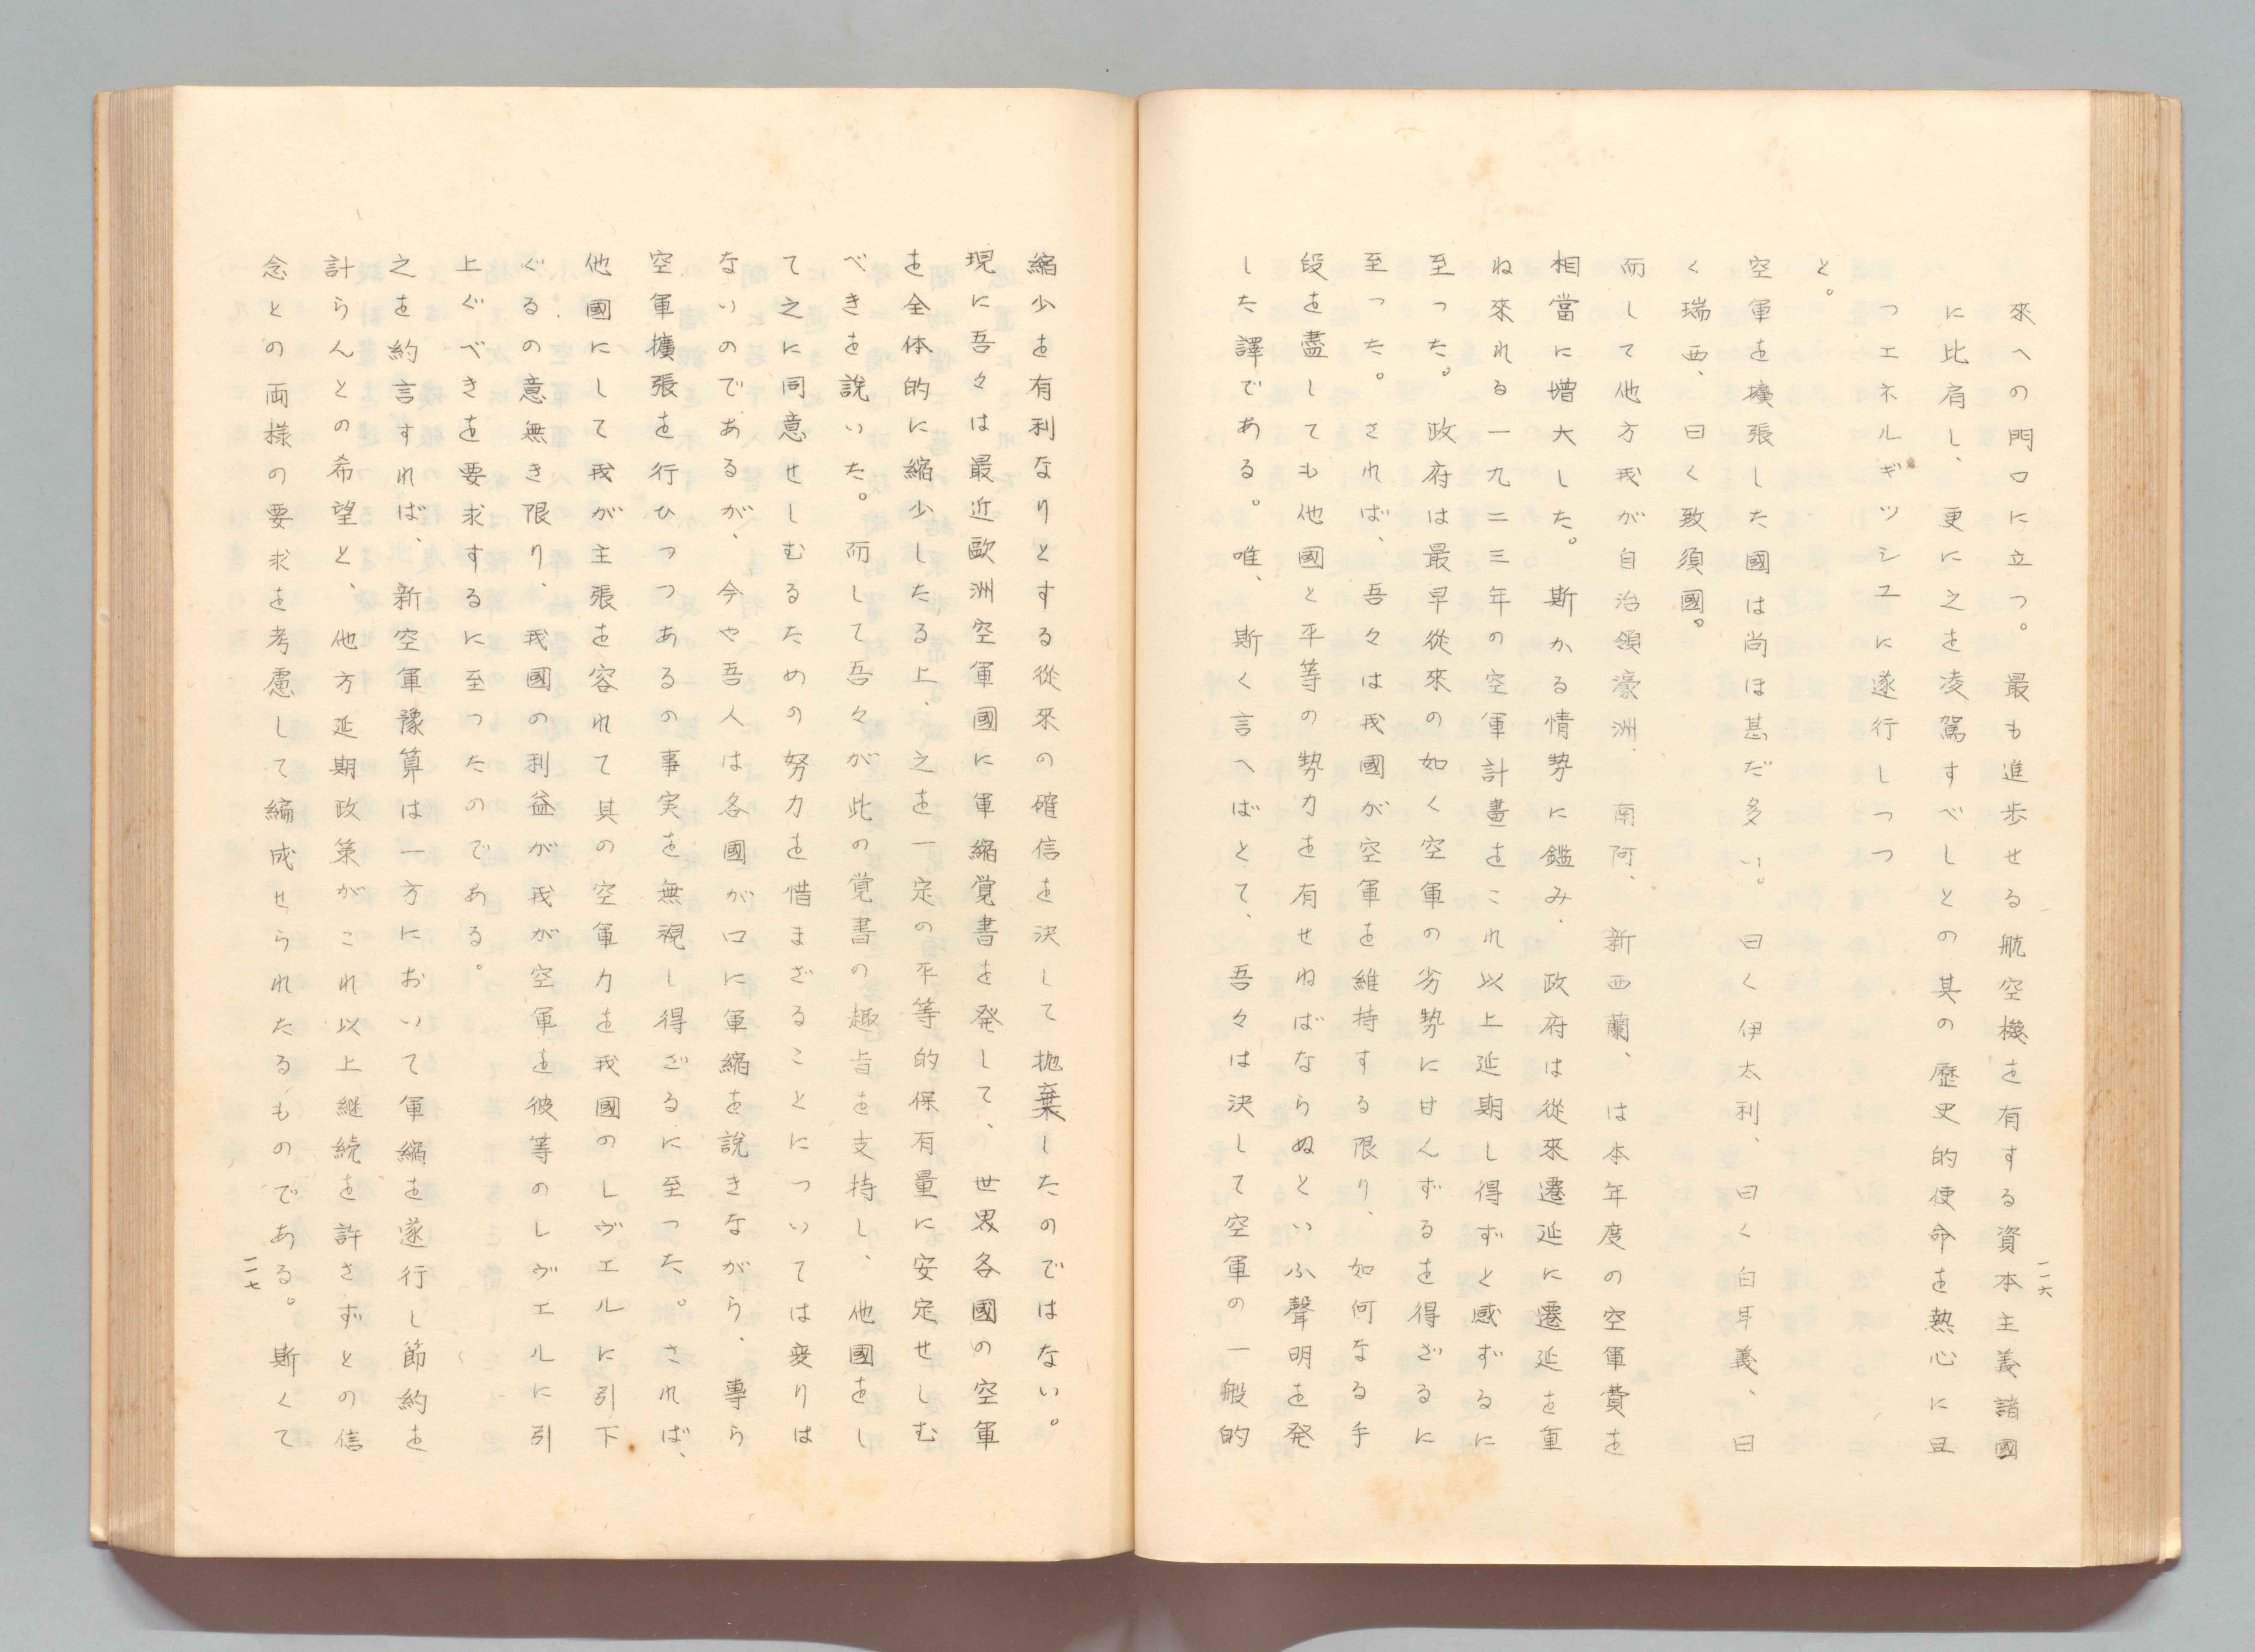 來への門口に立つ。最も進歩せる航空機を有する資本主義諸國
に比肩し、更に之を凌駕すべしとの其の歴史的使命を熱心に且
つエネルギツシユに遂行しつつ
と。
空軍を擴張した國は尚ほ甚だ多い。曰く伊太利、曰く白耳義、曰
く瑞西、曰く致須國。
而して他方我が自治領濠洲、南阿、新西蘭、は本年度の空軍費を
相當に增大した。斯かる情勢に鑑み、政府は從來遷延に遷延を重
ね來れる一九二三年の空軍計畫をこれ以上延期し得ずと感ずるに
至つた。政府は最早從來の如く空軍の劣勢に甘んずるを得ざるに
至つた。されば、吾々は我國が空軍を維持する限り、如何なる手
段を盡しても他國と平等の勢力を有せねばならぬといふ聲明を発
した譯である。唯、斯く言へばとて、吾々は決して空軍の一般的
一一六
縮少を有利なりとする從來の確信を決して抛棄したのではない。
現に吾々は最近歐洲空軍國に軍縮覚書を発して、世界各國の空軍
を全体的に縮少したる上、之を一定の平等的保有量に安定せしむ
べきを説いた。而して吾々が此の覚書の趣旨を支持し、他國をし
て之に同意せしむるための努力を惜まざることについては変りは
ないのであるが、今や吾人は各國が口に軍縮を説きながら、專ら
空軍擴張を行ひつつあるの事実を無視し得ざるに至つた。されば、
他國にして我が主張を容れて其の空軍力を我國のレヴエルに引下
ぐるの意無き限り、我國の利益が我が空軍を彼等のレヴエルに引
上ぐべきを要求するに至つたのである。
之を約言すれば、新空軍豫算は一方において軍縮を遂行し節約を
計らんとの希望と、他方延期政策がこれ以上継続を許さずとの信
念との両様の要求を考慮して編成せられたるものである。斯くて
一一七